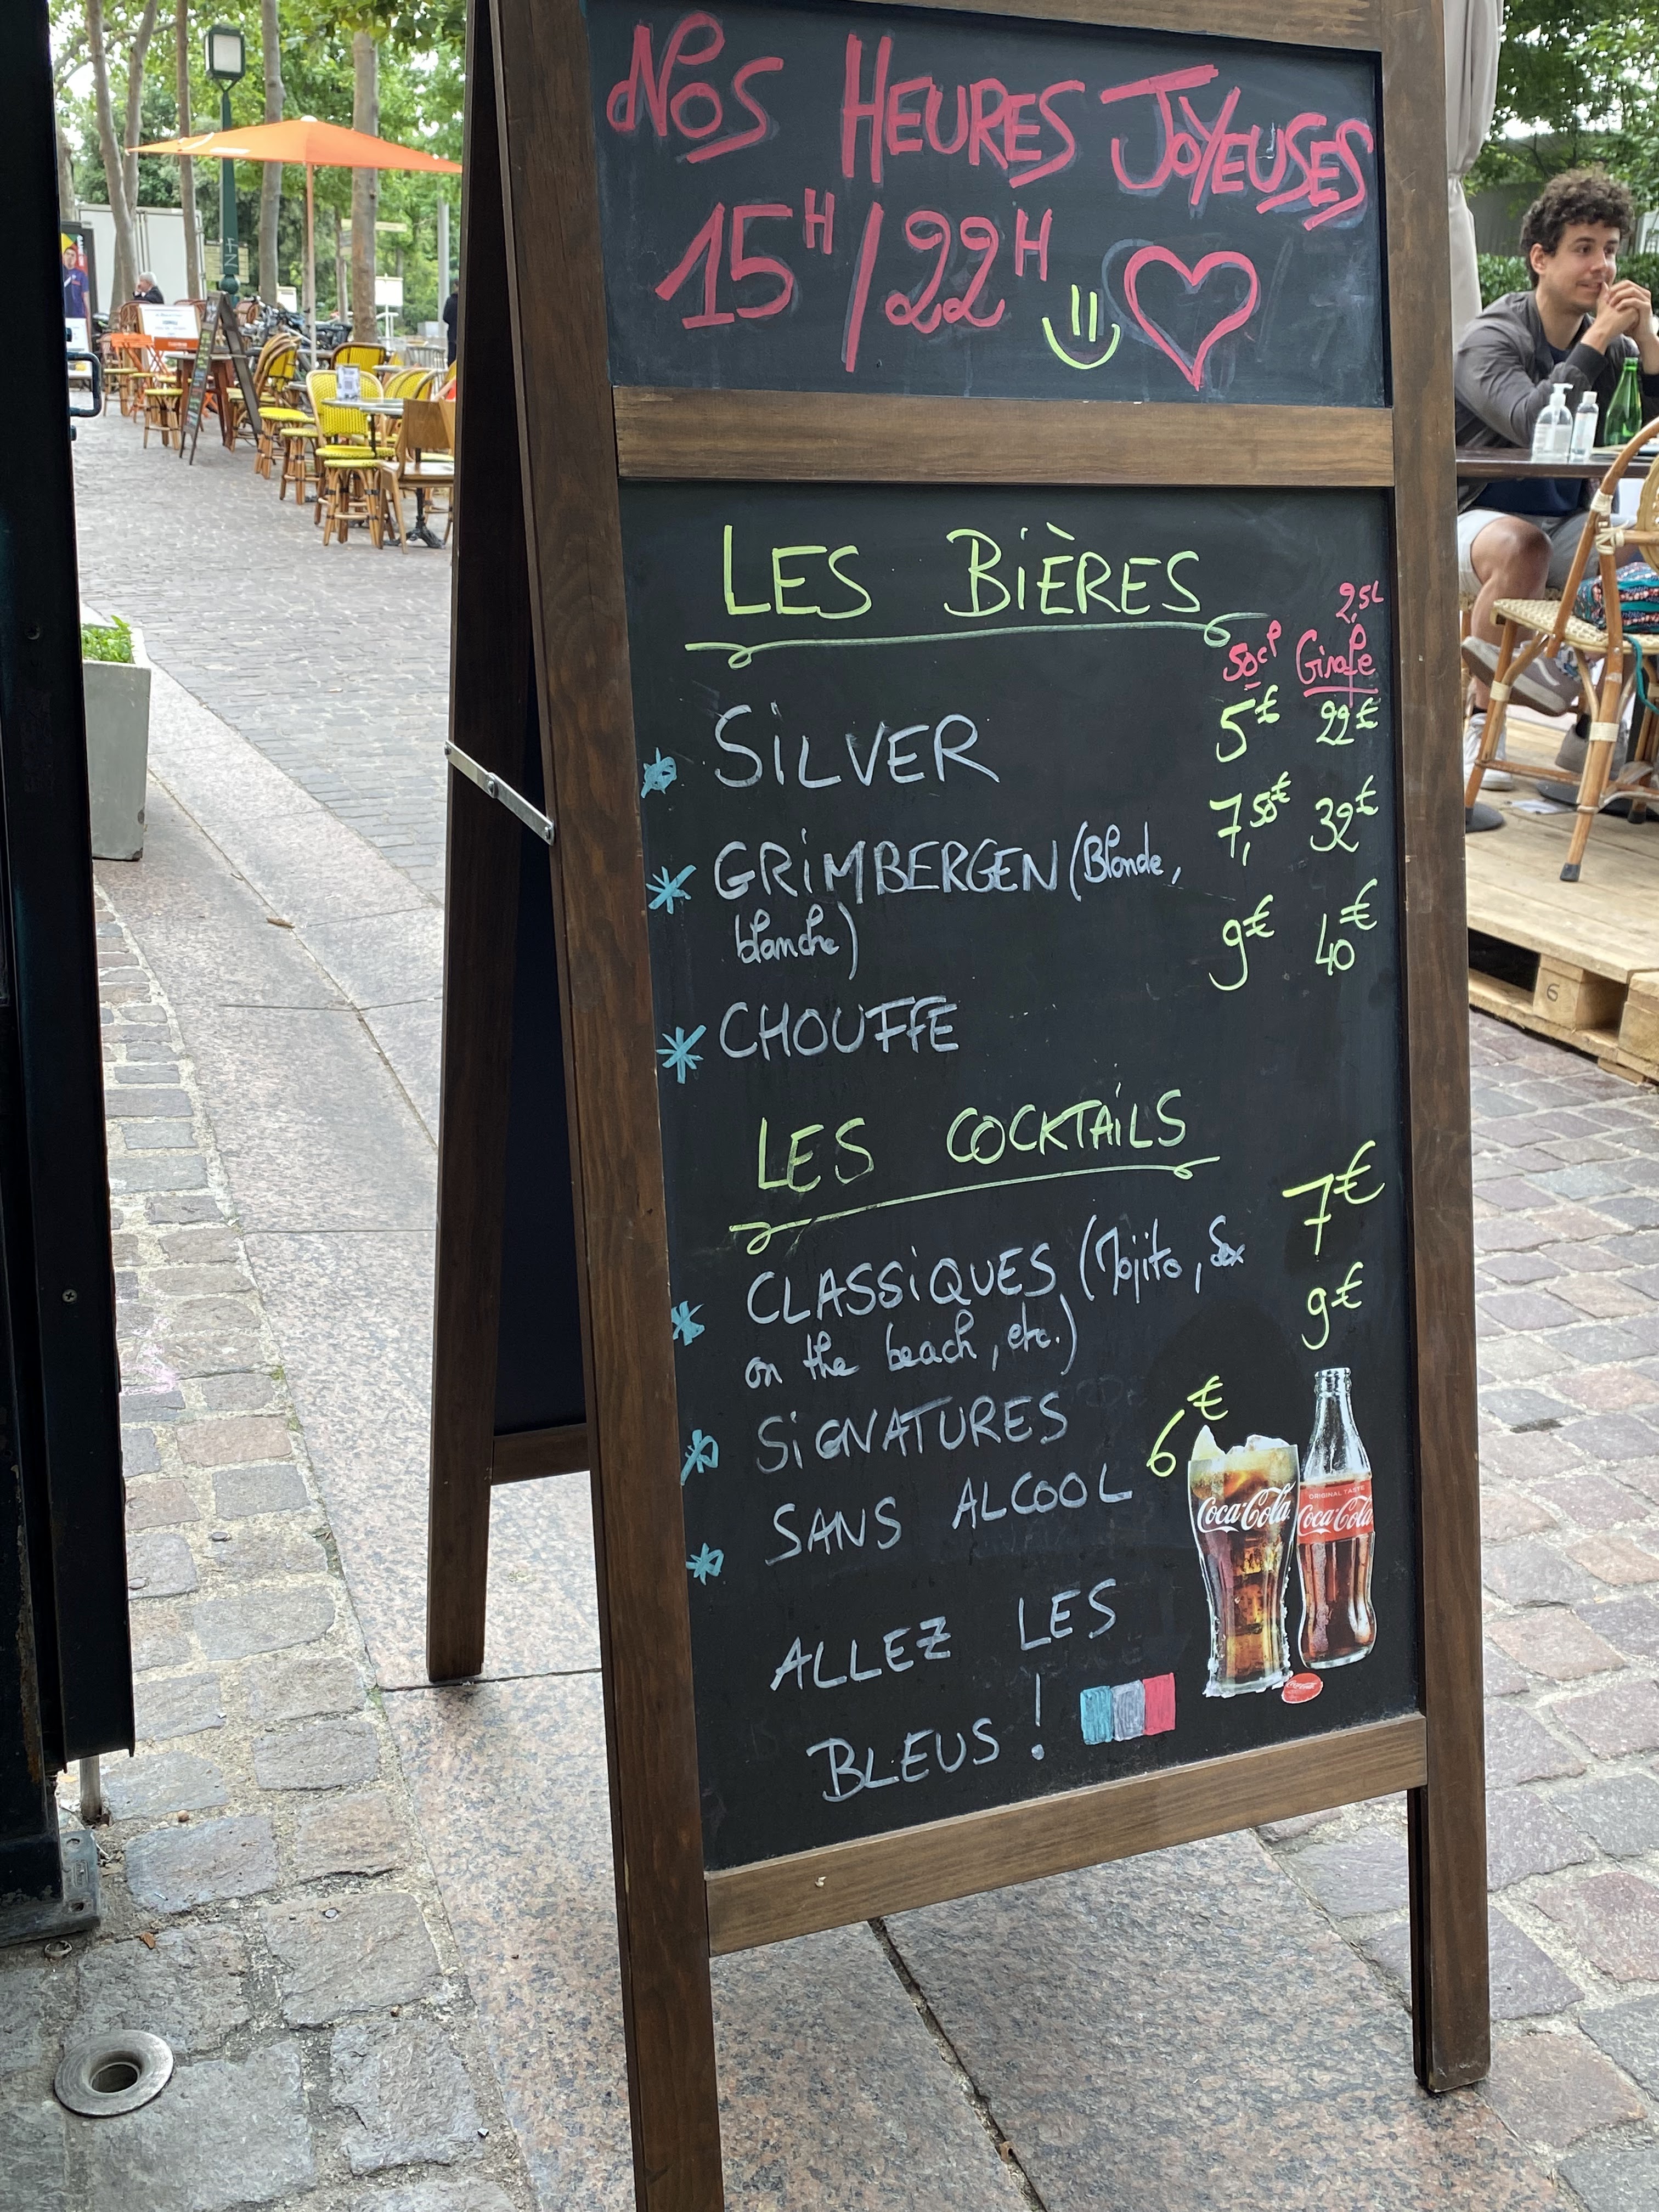 NOS HEURES JOYEUSES
15H/22H
LES BIÈRES
2,5L
50cl Girafe
SILVER 5€ 22€
GRIMBERGEN (Blonde, 7,50€ 32€
blanche) 9€ 40€
CHOUFFE
LES COCKTAILS
7€
CLASSIQUES (Mojito, Sex
on the beach, etc.) 9€
SIGNATURES 6€
SANS ALCOOL
ALLEZ LES
BLEUS !
Coca-Cola
ORIGINAL TASTE
Coca-Cola
6